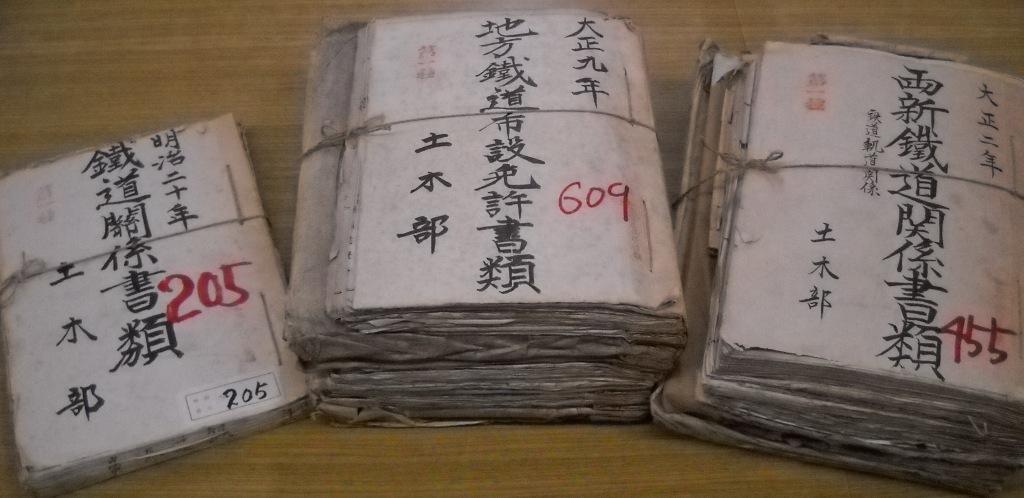 明治二十年
鐵道關係書類
土木部
205
205
第一種
大正九年
地方鐵道布設免許書類
土木部
609
第一種
大正二年
西新鐵道関係書類
鉄道軌道関係
土木部
455